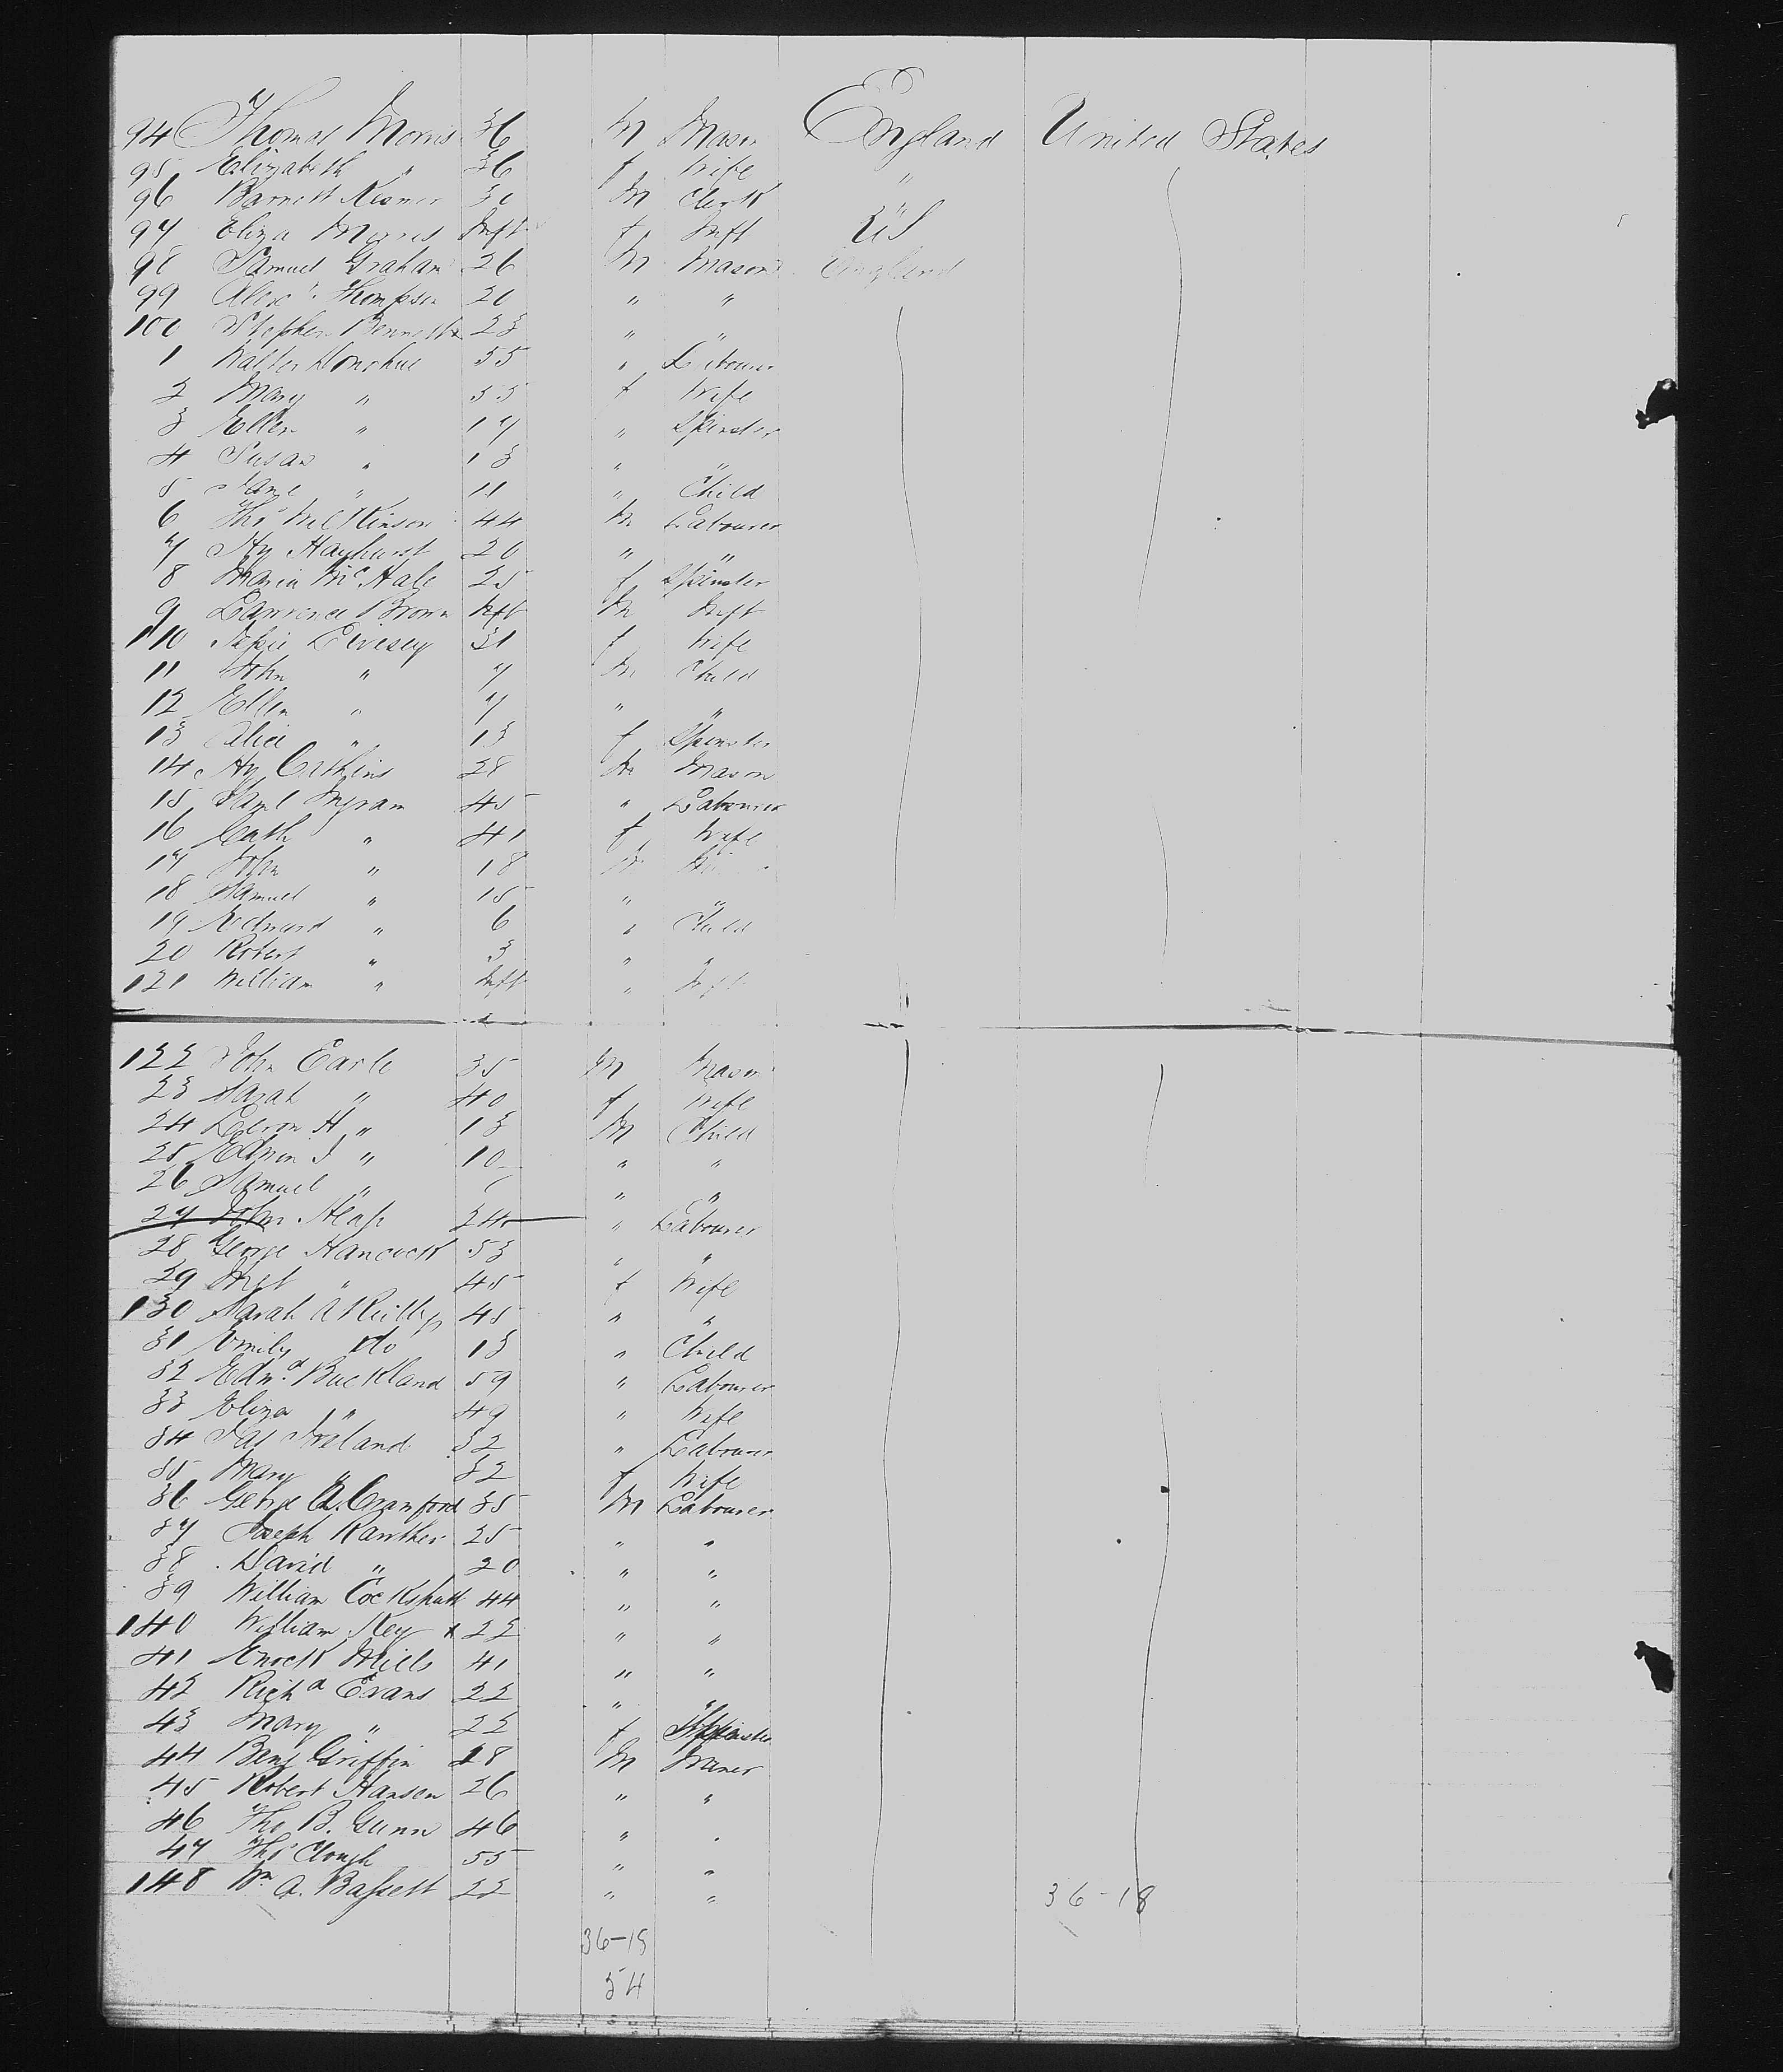 94 Thomas Morris 36 M Mason England United States
95 Elizabeth " 36 f Wife "
96 Barnett 30 M Clerk "
97 Eliza Morris Inft f Inft US
98 Samuel Graham 26 M Mason England
99 Alexr. Thompson 20 " "
100 Stephen Bennett 23 " "
1 Walter Donohue 55 " Labourer
2 Mary " 55 f Wife
3 Ellen " 17 " Spinster
4 Susan " 13 " "
5 Jane " 11 " Child
6 Thos Wilkinson 44 M Labourer
7 Hy Hayhurst 20 " "
8 Maria McHale 25 f Spinster
9 Lawrence Brown Inft M Inft
110 Livesey 31 f Wife
11 John " 7 M Child
12 Ellen " 7 " "
13 Alice " 13 f Spinster
14 Hy 28 M Mason
15 Saml Ingram 45 " Labourer
16 Cath " 41 f Wife
17 John " 18 M
18 Samuel " 15 " "
19 Edward " 6 " Child
20 Robert " 3 " "
121 William " Inft " Inft
122 John Earle 35 M Mason
23 Sarah " 40 f Wife
24 H " 13 M Child
25 Edwin J " 10 " "
26 Samuel " " "
27 John Heap 24 " Labourer
28 George Hancock 53 " "
29 Mgt " 45 f Wife
130 Sarah A Reilly 45 " "
31 Emily do 13 " Child
32 Edwd. Buckland 59 " Labourer
33 Eliza " 49 " Wife
34 Jas Ireland 32 " Labourer
35 Mary " 32 f Wife
36 George A. Crawford 35 M Labourer
37 Joseph Ranther 25 " "
38 David " 20 " "
39 William Cockshutt 44 " "
140 William Key x 22 " "
41 Enock Mills 41 " "
42 Richd Evans 22 " "
43 Mary " 22 f Spinster
44 Benj Griffin 28 M Miner
45 Robert Hanson 26 " "
46 Tho B. Gunn 46 " "
47 Thos Clough 55 " "
148 Wm A. Bassett 22 " "
36-18
36-18
54